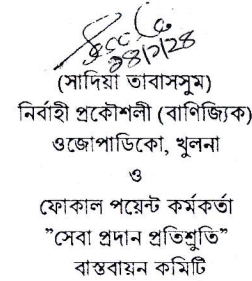 ২৪/২/২৪
(সাদিয়া তাবাসসুম)
নির্বাহী প্রকৌশলী (বাণিজ্যিক)
ওজোপাডিকো, খুলনা
ও
ফোকাল পয়েন্ট কর্মকর্তা
”সেবা প্রদান প্রতিশ্রুতি”
বাস্তবায়ন কমিটি